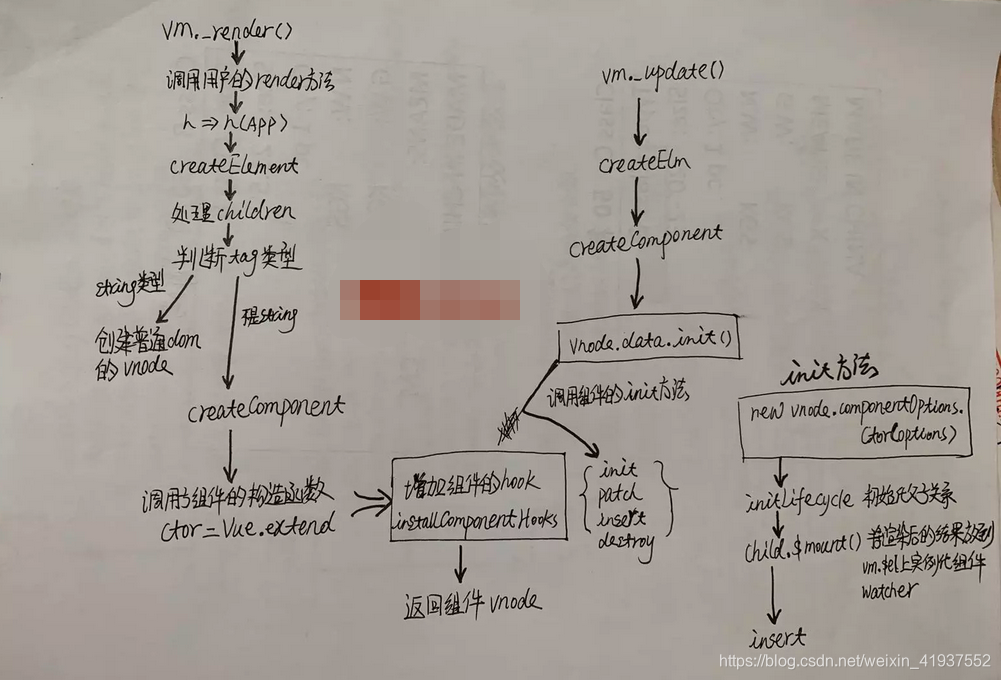 vm._render()
调用用户的render方法
h => h(App)
createElement
处理children
判断tag类型
string类型
创建普通dom
的vnode
不是string
createComponent
调用子组件的构造函数
Ctor=Vue.extend
增加组件的hook
installComponentHooks
返回组件 vnode
vm._update()
createElm
createComponent
vnode.data.init()
调用组件的init方法
init
patch
insert
destroy
init方法
new vnode.componentOptions.
Ctor(options)
initLifecycle 初始化父子关系
child.$mount() 普渲染后的结果放到
vm.$el上实例化组件
watcher
insert
https://blog.csdn.net/weixin_41937552